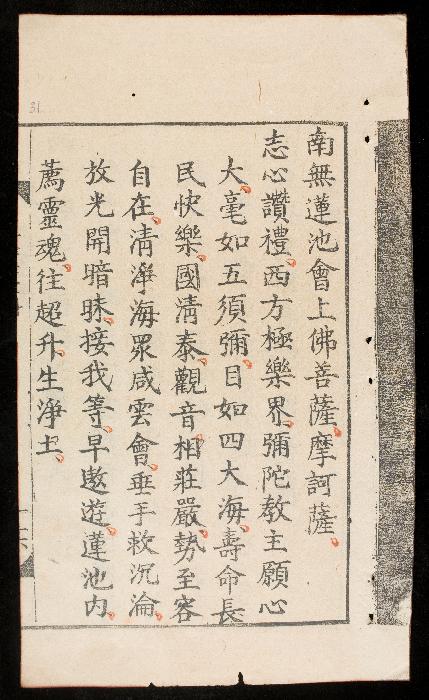 南無蓮池會上佛菩薩摩訶薩
志心讚禮西方極樂界彌陀教主願心
大毫如五須彌目如四大海壽命長
民快樂國清泰觀音相莊嚴勢至容
自在清淨海眾咸雲會垂手救沉淪
放光開暗昧接我等早遨遊蓮池內
薦靈魂往超升生淨土
31